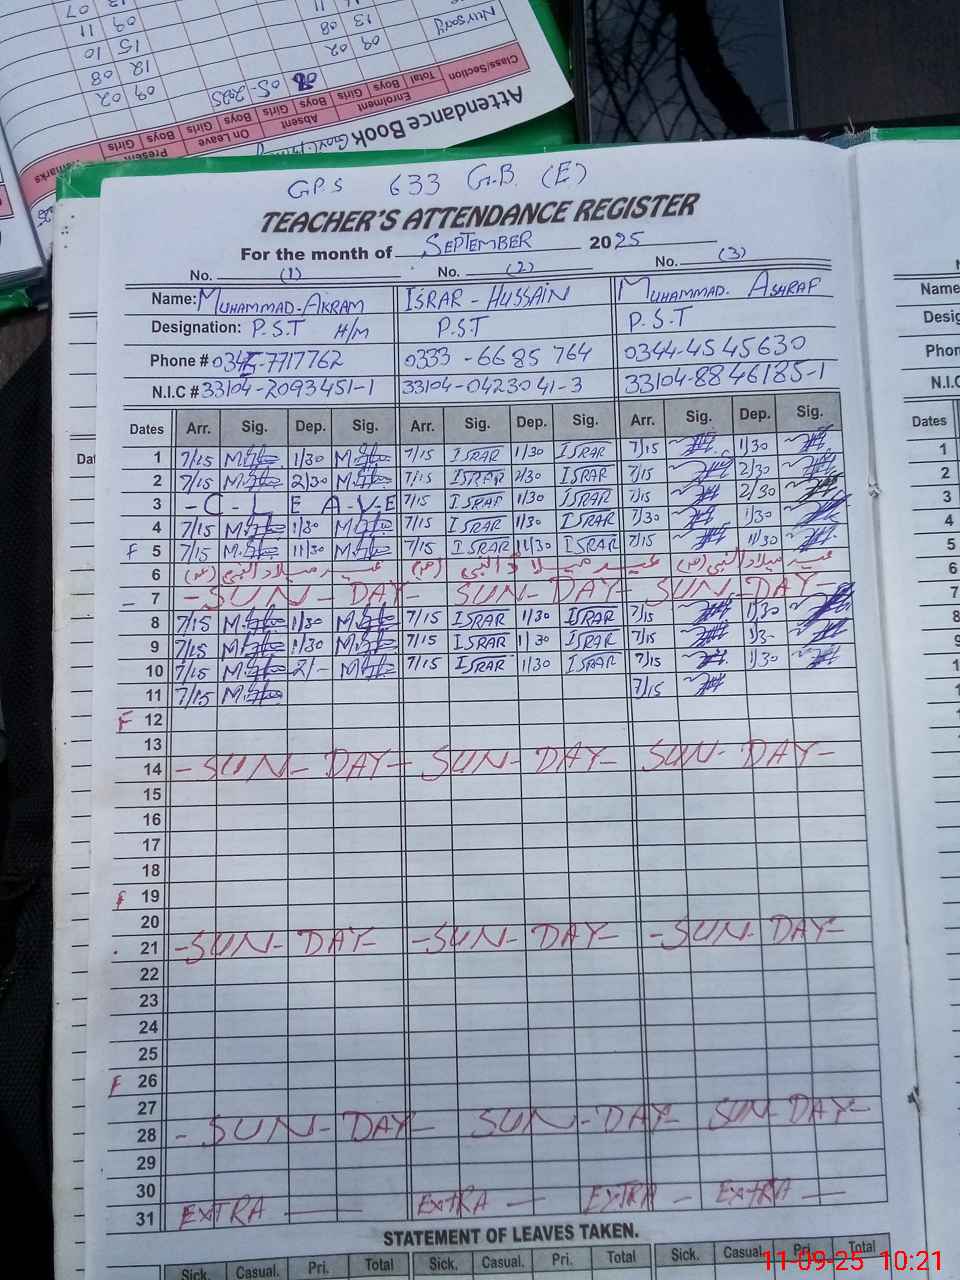 Attendance Book
Class/Section Enrolment Absent On Leave Present Remarks
Total Boys Girls Boys Girls Boys Girls Boys Girls
05-2025
Nursory
09 02
13 08
11
09 02
12 08
15 10
09 11
07
G.P.S 633 G.B. (E)
TEACHER'S ATTENDANCE REGISTER
For the month of SEPTEMBER 2025
No. (1) No. (2) No. (3)
Name: MUHAMMAD-AKRAM ISRAR-HUSSAIN MUHAMMAD. ASHRAF
Designation: P.S.T H/M P.S.T P.S.T
Phone # 0345-7717762 0333-6685764 0344-4545630
N.I.C # 33104-2093451-1 33104-0423041-3 33104-8846185-1
Dates Arr. Sig. Dep. Sig. Arr. Sig. Dep. Sig. Arr. Sig. Dep. Sig.
1 7/15 1/30 7/15 ISRAR 1/30 ISRAR 7/15 1/30
2 7/15 2/30 7/15 ISRAR 2/30 ISRAR 7/15 2/30
3 -C-L E A-V-E 7/15 ISRAR 1/30 ISRAR 7/15 2/30
4 7/15 1/30 7/15 ISRAR 1/30 ISRAR 7/30 1/30
F 5 7/15 11/30 7/15 ISRAR 11/30 ISRAR 7/15 11/30
6 عید میلاد النبی عید میلاد النبی عید میلاد النبی
7 -SUN-DAY- SUN-DAY- SUN-DAY-
8 7/15 1/30 7/15 ISRAR 1/30 ISRAR 7/15 1/30
9 7/15 1/30 7/15 ISRAR 1/30 ISRAR 7/15 1/3-
10 7/15 2/- 7/15 ISRAR 1/30 ISRAR 7/15 1/30
11 7/15 7/15
F 12
13
14 -SUN-DAY- SUN-DAY- SUN-DAY-
15
16
17
18
F 19
20
21 -SUN-DAY- -SUN-DAY- -SUN-DAY-
22
23
24
25
F 26
27
28 -SUN-DAY- SUN-DAY- SUN-DAY-
29
30
31 EXTRA — EXTRA — EXTRA — EXTRA —
STATEMENT OF LEAVES TAKEN.
Sick. Casual. Pri. Total Sick. Casual. Pri. Total Sick. Casual. Pri. Total
11-09-25 10:21